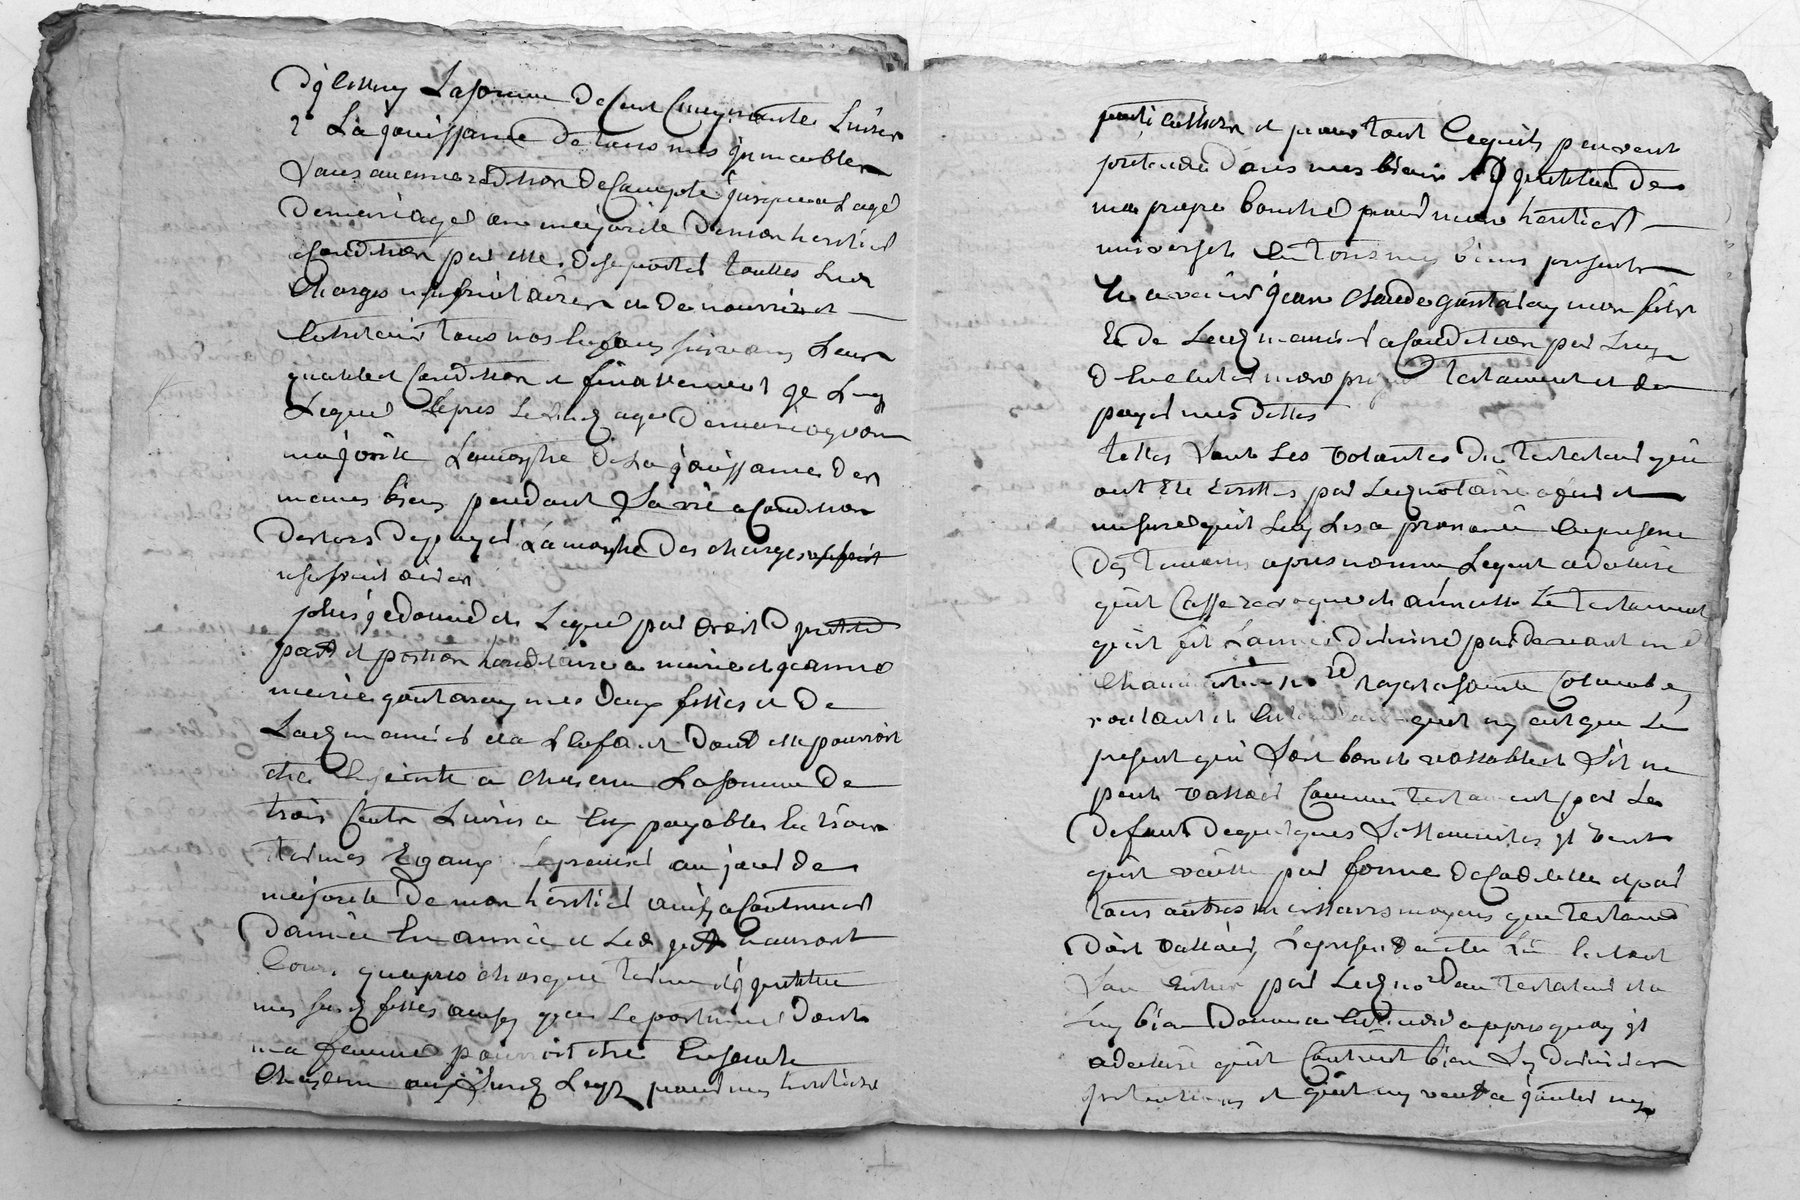 La somme de Cent Cinquante Livres
2° La jouissance de tous mes immeubles
sans aucune redition de Compte jusques a Lage
de mariage ou majorite de mon heritier
a Condition par elle de suporter touttes Les
Charges usufruitaires et de nourrir et
Entretenir tous nos Enfans suivans Leur
qualite et Condition et finallement je Luy
Legue apres Led age de mariage ou
majorite La moytie de La jouissance des
memes biens pendant sa vie a Condition
des Lors de payer La moytie des charges
usufruitaires
plus je donne et Legue par droit
part et portion hereditaire a marie et jeanne
marie mes deux filles et de
Lad et a L'enfant dont elle pourroit
etre Enceinte a chacun La somme de
trois Cents Livres a Eux payables En trois
termes Egaux Le premier au jour de
majorite de mon heritier ainsy a Continuer
d'année En année et Les n'auront
Cours qu'apres chasque terme et j'institue
mes susd filles ainsy que Le postume dont
ma femme pourroit etre Enceinte
Chacun aux susd Legs pour mes heritiers
particuliers et pour tout Ce qu'ils peuvent
pretendre dans mes biens et j'institue de
ma propre bouche pour mon heritier
universel En tous mes biens presents
et a venir jean Claude mon fils
et de Lad a Condition par Luy
d'Executer mon present testament et de
payer mes dettes
telles sont Les volontes du testateur qui
ont ete Ecrittes par Led notaire a fur et
mesure qu'il Luy Les a prononcé En presence
des temoins apres nommes Lequel a declaré
qu'il Casse revoque et annulle Le testament
qu'il fit L'année derniere par devant me
no^re royal a sainte Colombe
voulant et qu'il n'y ait que Le
present qui soit bon et vallable et s'il ne
peut valloir Comme testament par Le
defaut de quelques solemnites il veut
qu'il vaille par forme de Codicille et par
tous autres meilleurs moyens que testament
doit valloir Le present a ete Lu
Entier par Led no^re au testateur et a
Luy bien donné a Entendre appres quoy il
a declaré qu'il Contient bien ses dernieres
intentions et qu'il n'y veut a jouter ny